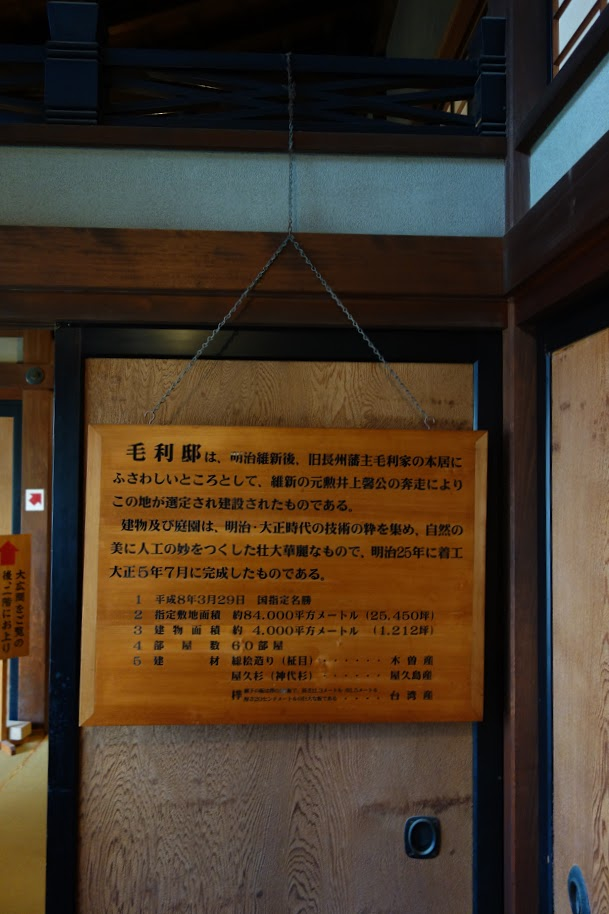 毛利邸は、明治維新後、旧長州藩主毛利家の本居に
ふさわしいところとして、維新の元勲井上馨公の奔走により
この地が選定され建設されたものである。
建物及び庭園は、明治・大正時代の技術の粋を集め、自然の
美に人工の妙をつくした壮大華麗なもので、明治25年に着工
大正5年7月に完成したものである。
1 平成8年3月29日 国指定名勝
2 指定敷地面積 約84.000平方メートル（25.450坪）
3 建物面積 約 4.000平方メートル （1.212坪）
4 部屋数 60部屋
5 建材 総桧造り（柾目）・・・・・・木曽産
屋久杉（神代杉）・・・・・・屋久島産
欅 ・・・・台湾産
大広間をご覧の
後、二階にお上り